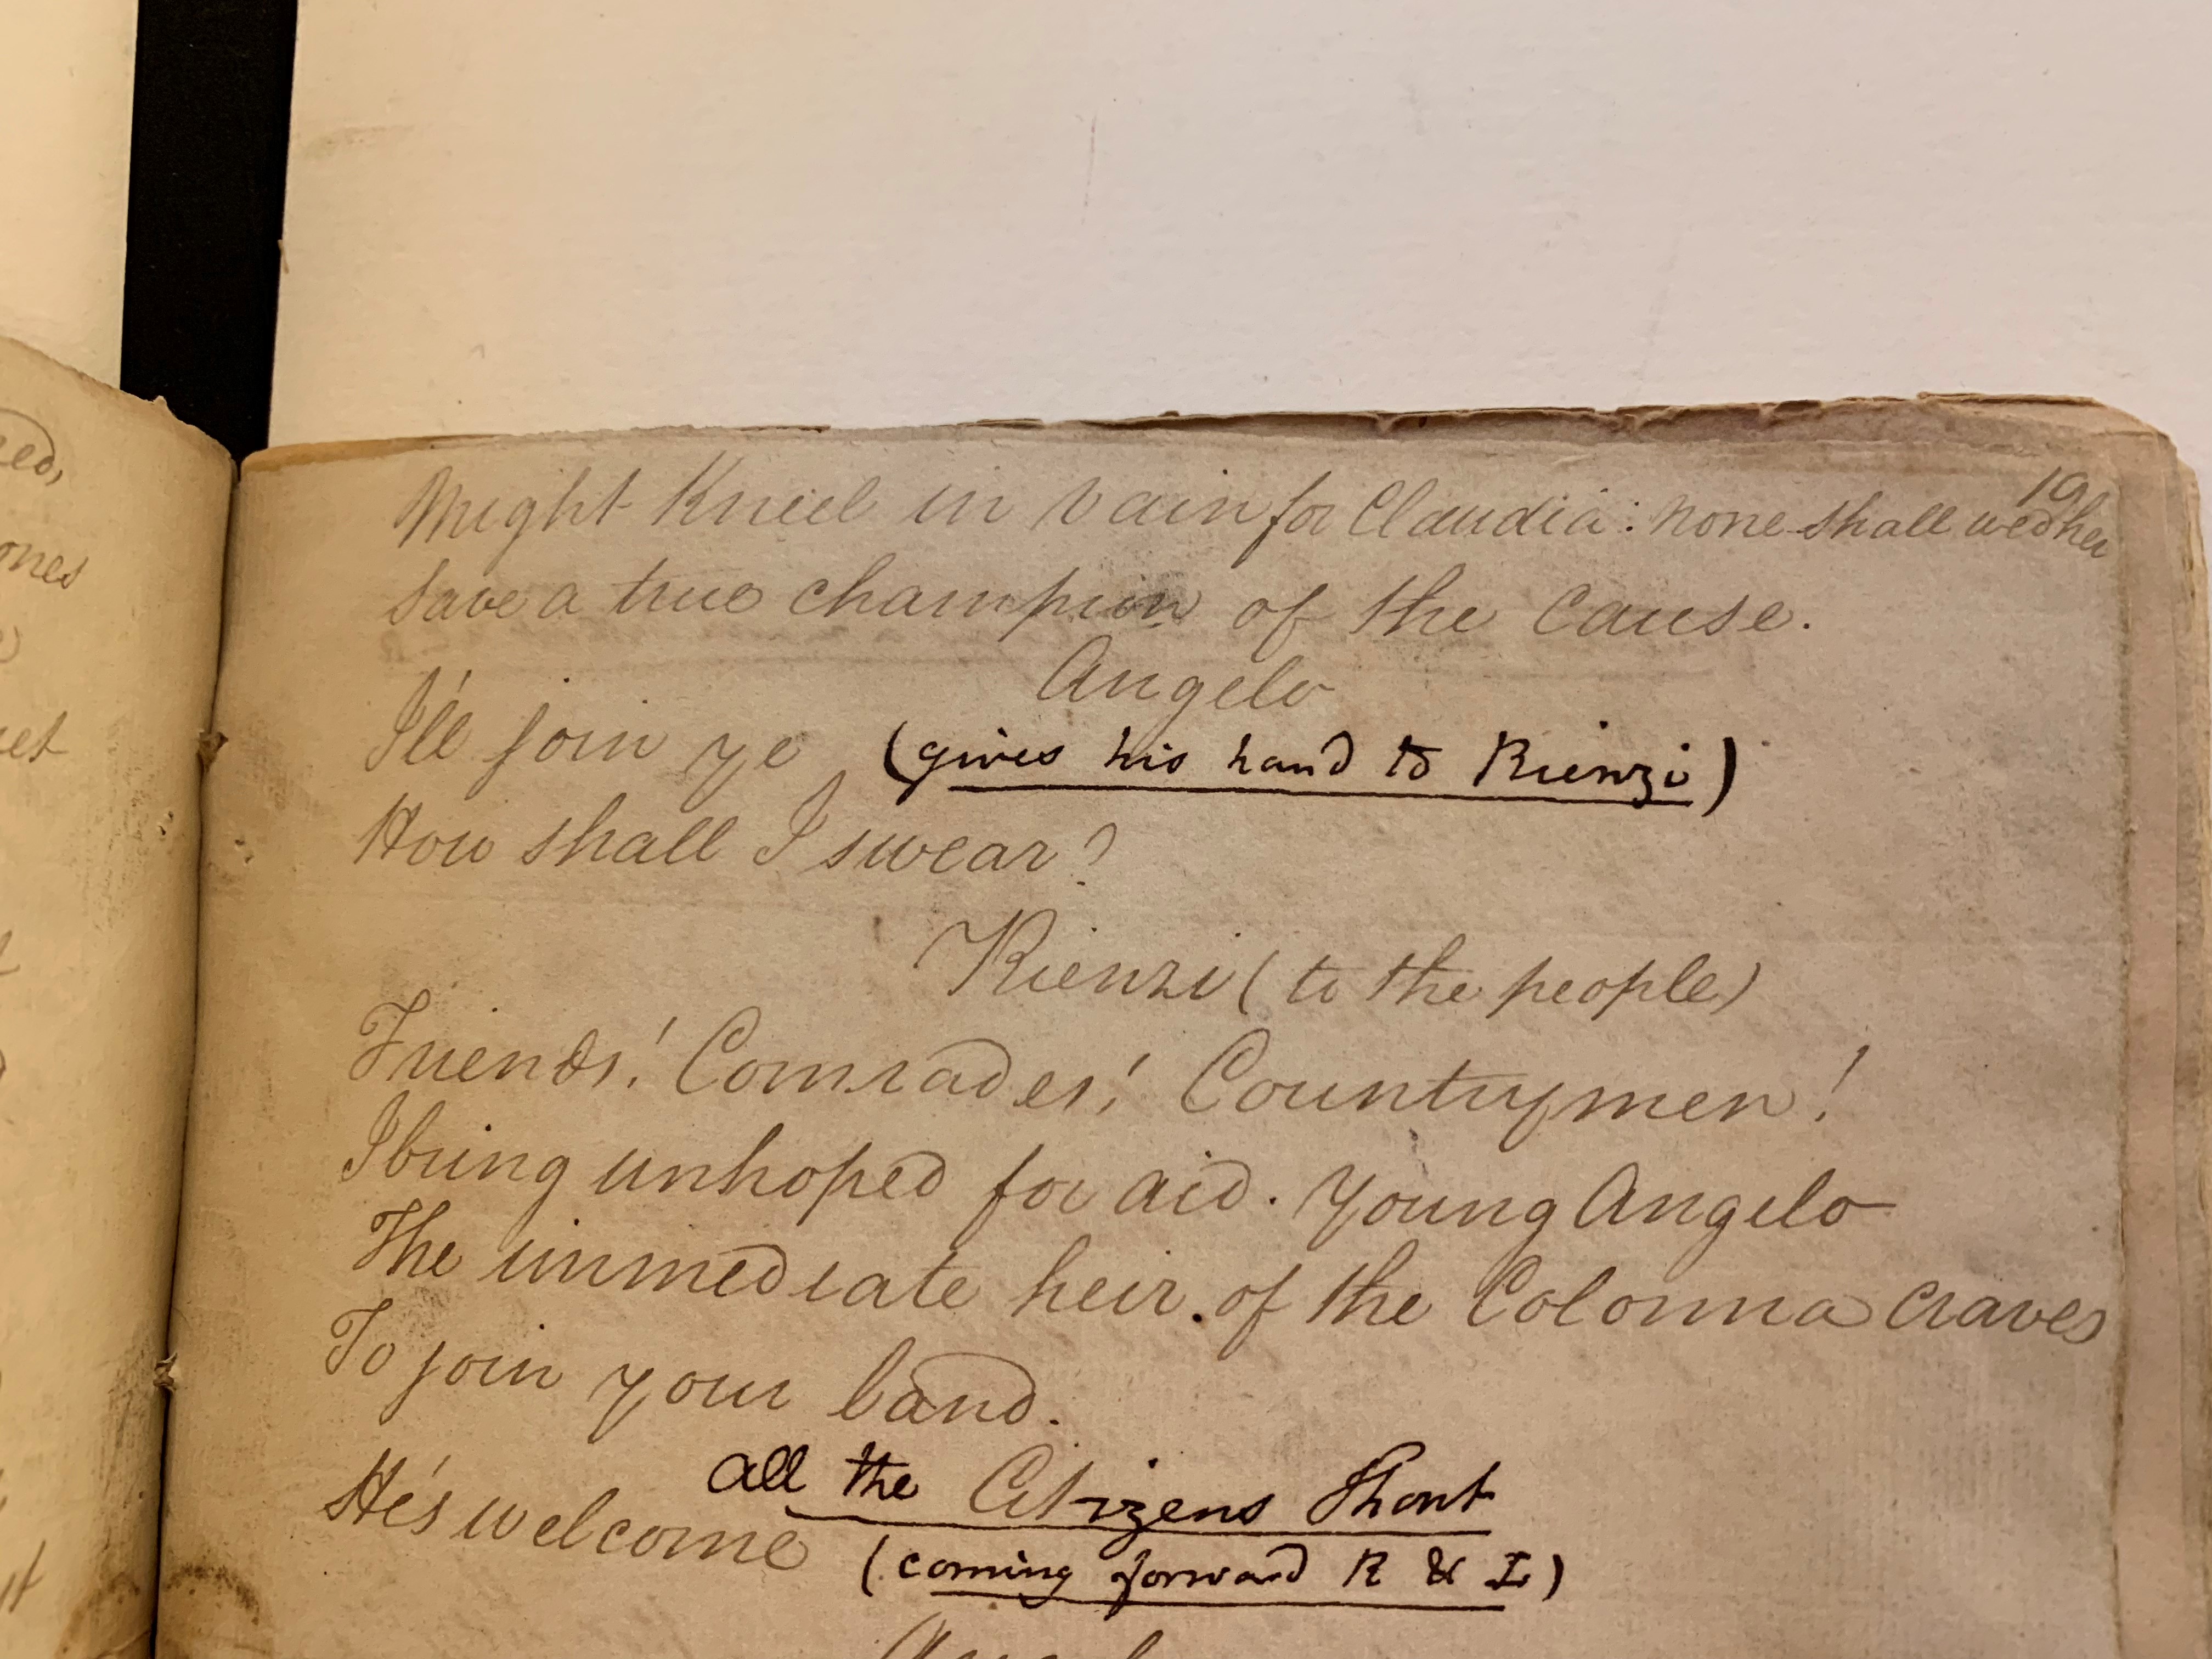 19
Might Kneel in vain for Claudia: none shall wed her
Save a true champion of the Cause.
Angelo
I'll join ye (gives his hand to Rienzi)
How shall I swear?
Rienzi (to the people)
Friends! Comrades! Countrymen!
I bring unhoped for aid. Young Angelo
The immediate heir of the Colonna craves
To join your band.
all the Citizens Shout
He's welcome (coming forward R & L)
ones